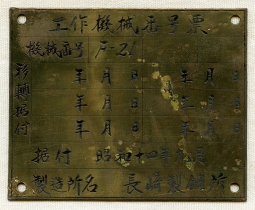 工作機械番号票
機械番号 戸-21
移動据付
年 月 日 年 月 日
年 月 日 年 月 日
年 月 日 年 月 日
据付 昭和十四年 月
製造所名 長崎製鋼所